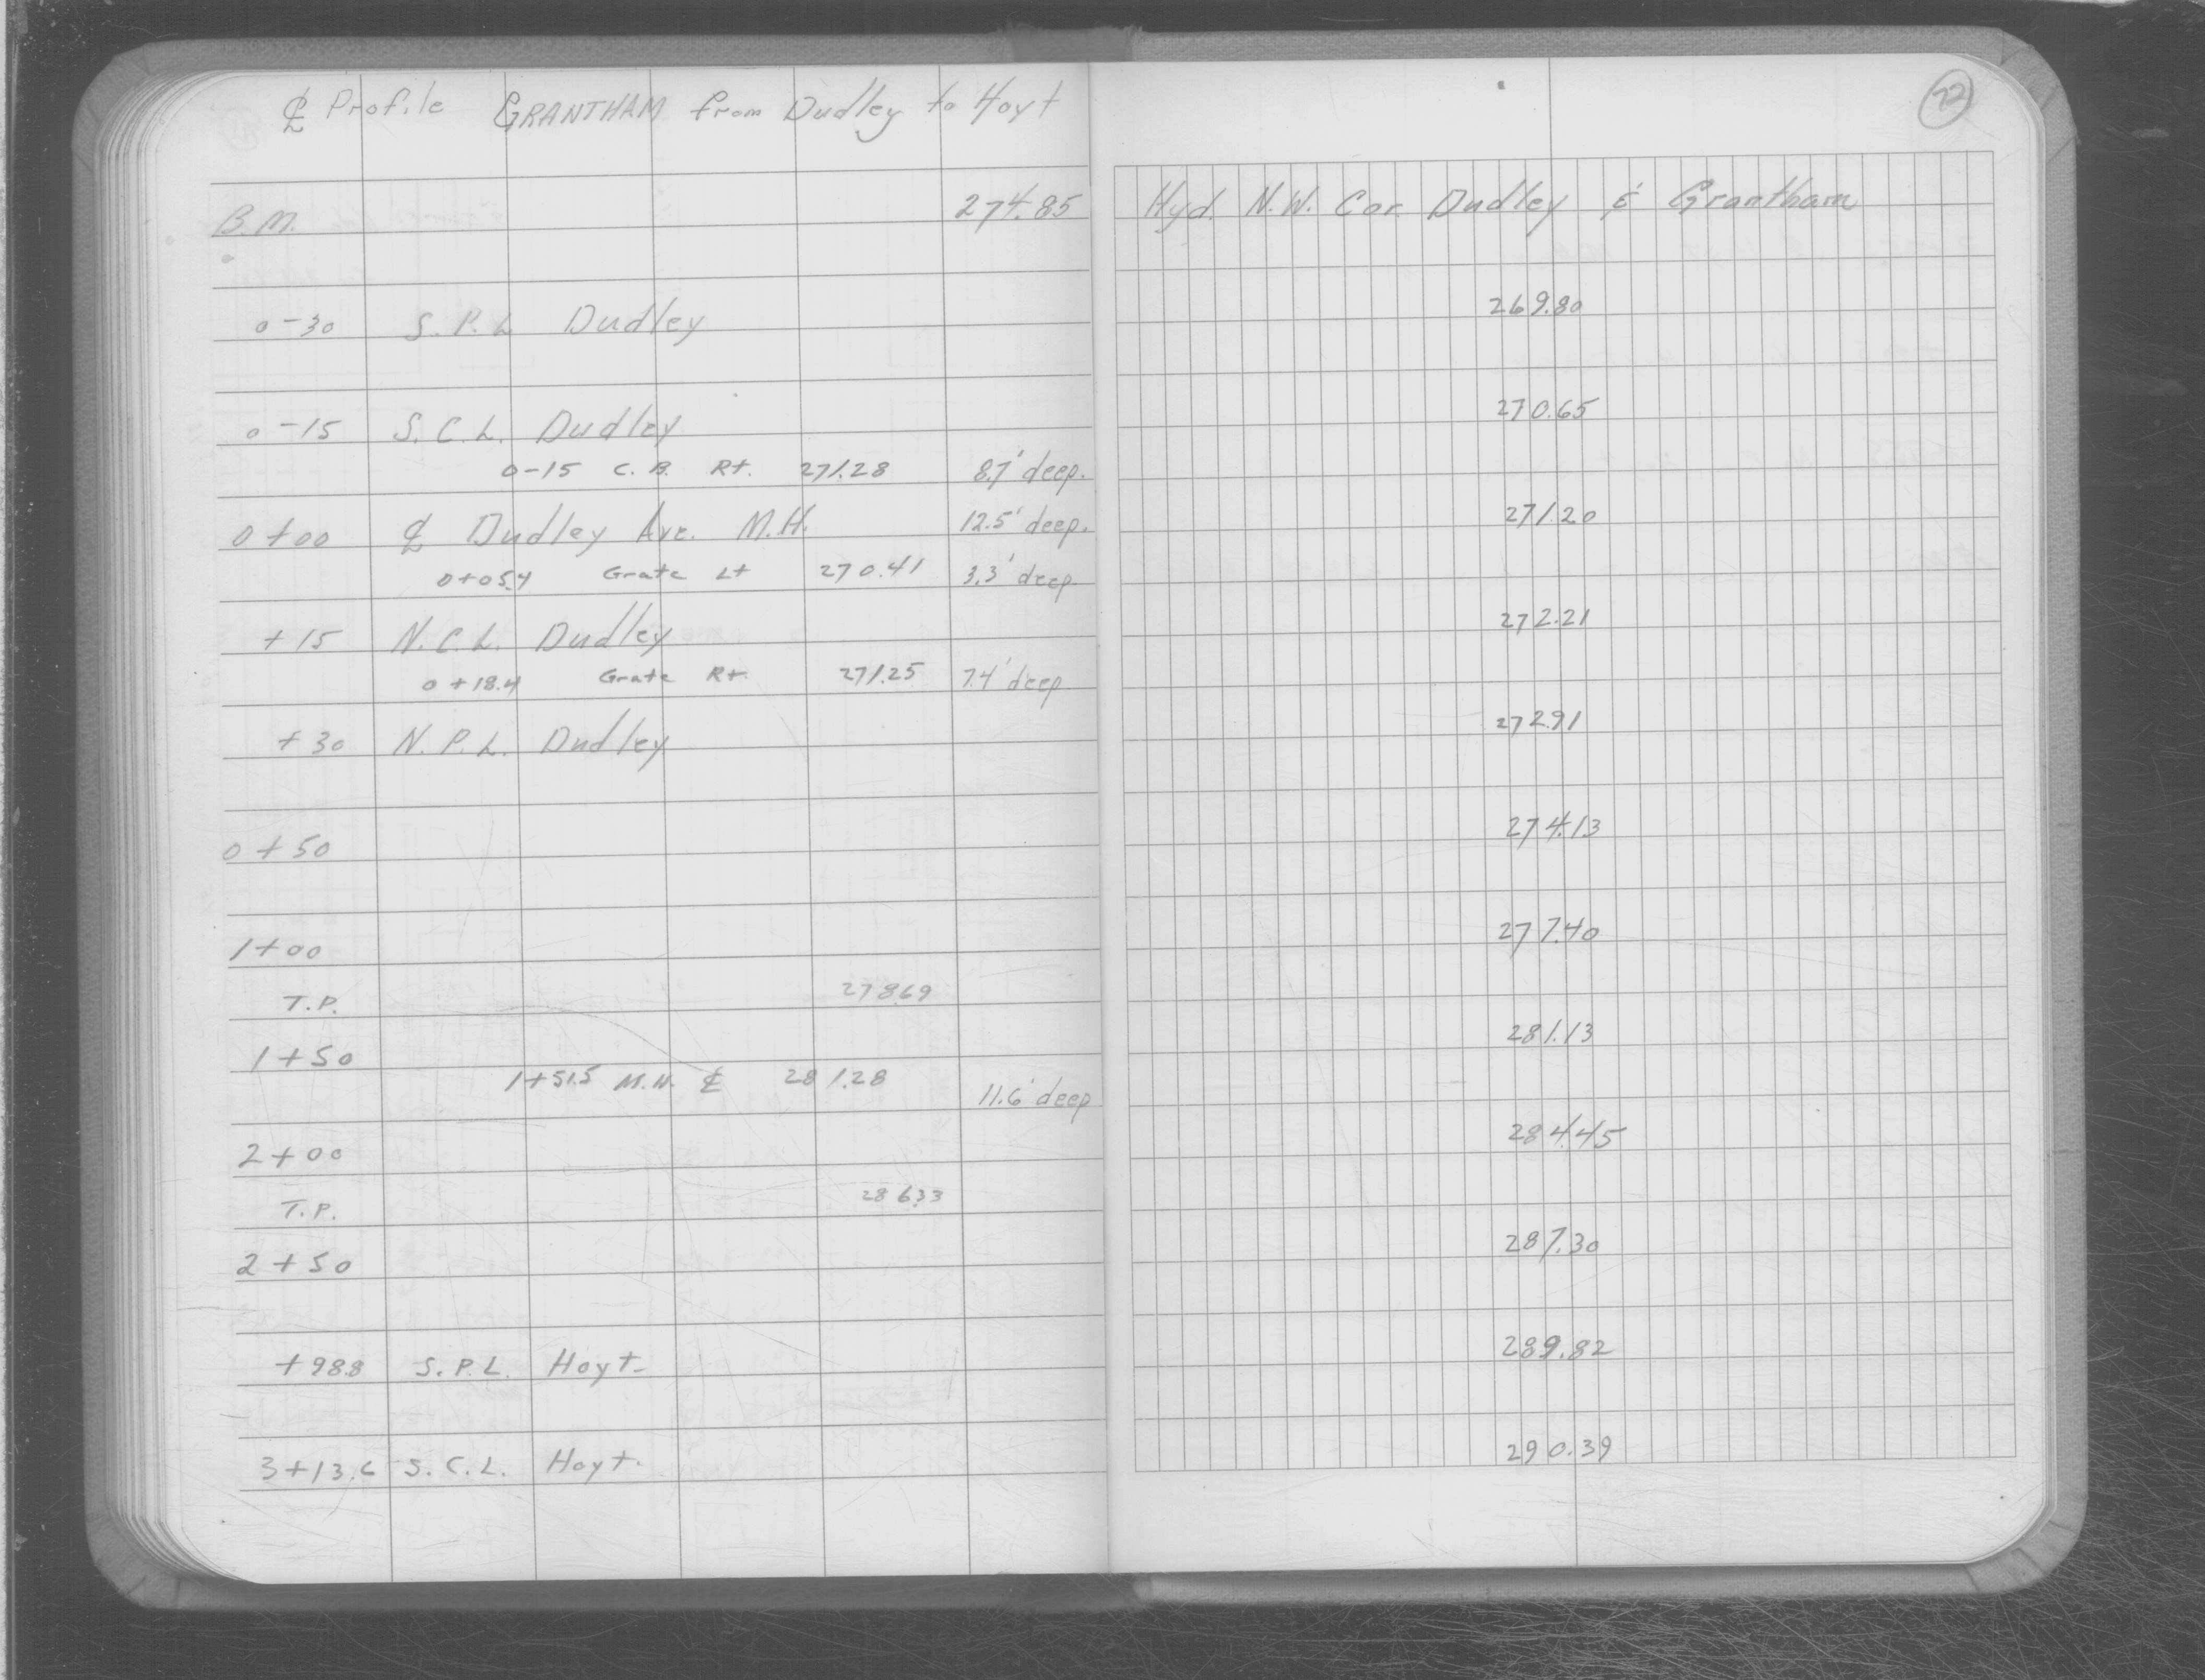 ℄ Profile GRANTHAM from Dudley to Hoyt
22
B.M. 274.85 Hyd. N.W. Cor. Dudley & Grantham
0-30 S.P.L Dudley 269.80
0-15 S.C.L. Dudley 270.65
0-15 C.B. Rt. 271.28 8.7' deep.
0+00 ℄ Dudley Ave. M.H. 12.5' deep. 271.20
0+05.4 Grate Lt 270.41 3.3' deep.
+15 N.C.L. Dudley 272.21
0+18.4 Grate Rt. 271.25 7.4' deep
+30 N.P.L. Dudley 272.91
0+50 274.13
1+00 277.40
T.P. 278.69
1+50 281.13
1+51.5 M.H. ℄ 281.28 11.6' deep
2+00 284.45
T.P. 286.33
2+50 287.30
+98.8 S.P.L. Hoyt 289.82
3+13.6 S.C.L. Hoyt. 290.39